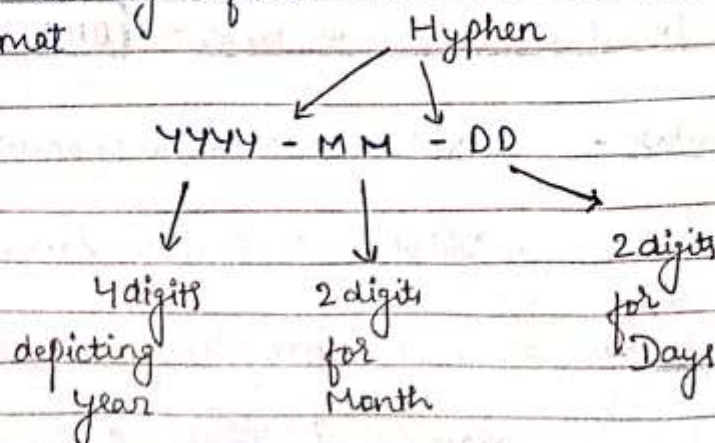 mat
Hyphen
YYYY - MM - DD
4 digits
depicting
year
2 digits
for
Month
2 digits
for
Days